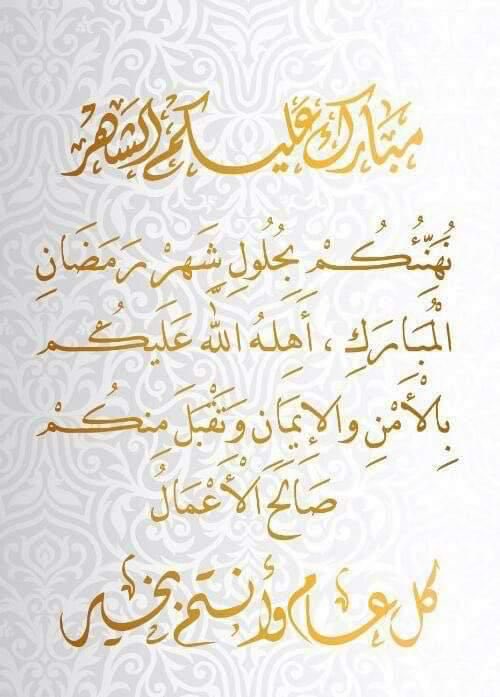 مبارك عليكم الشهر
نُهَنِّئُكُمْ بِحُلُولِ شَهْرِ رَمَضَانِ
الْمُبَارَكِ ، أَهِلهُ اللّٰه عَلَيكُم
بِالْأَمْنِ والإِيمَان وَتَقْبَلَ مِنكُمْ
صَالَحَ الْأَعْمَالُ
كل عام وأنتم بخير